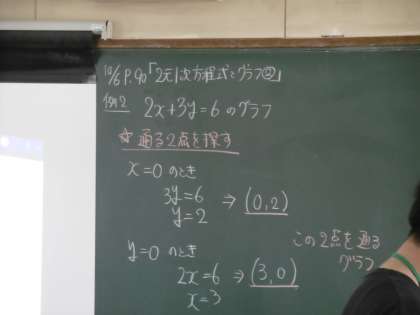 10/6 P.90「2元1次方程式とグラフ②」
例2 2x+3y=6 のグラフ
☆通る2点を探す
x=0 のとき
3y=6 ⇒ (0,2)
y=2
y=0 のとき
2x=6 ⇒ (3,0)
x=3
この2点を通る
グラフ